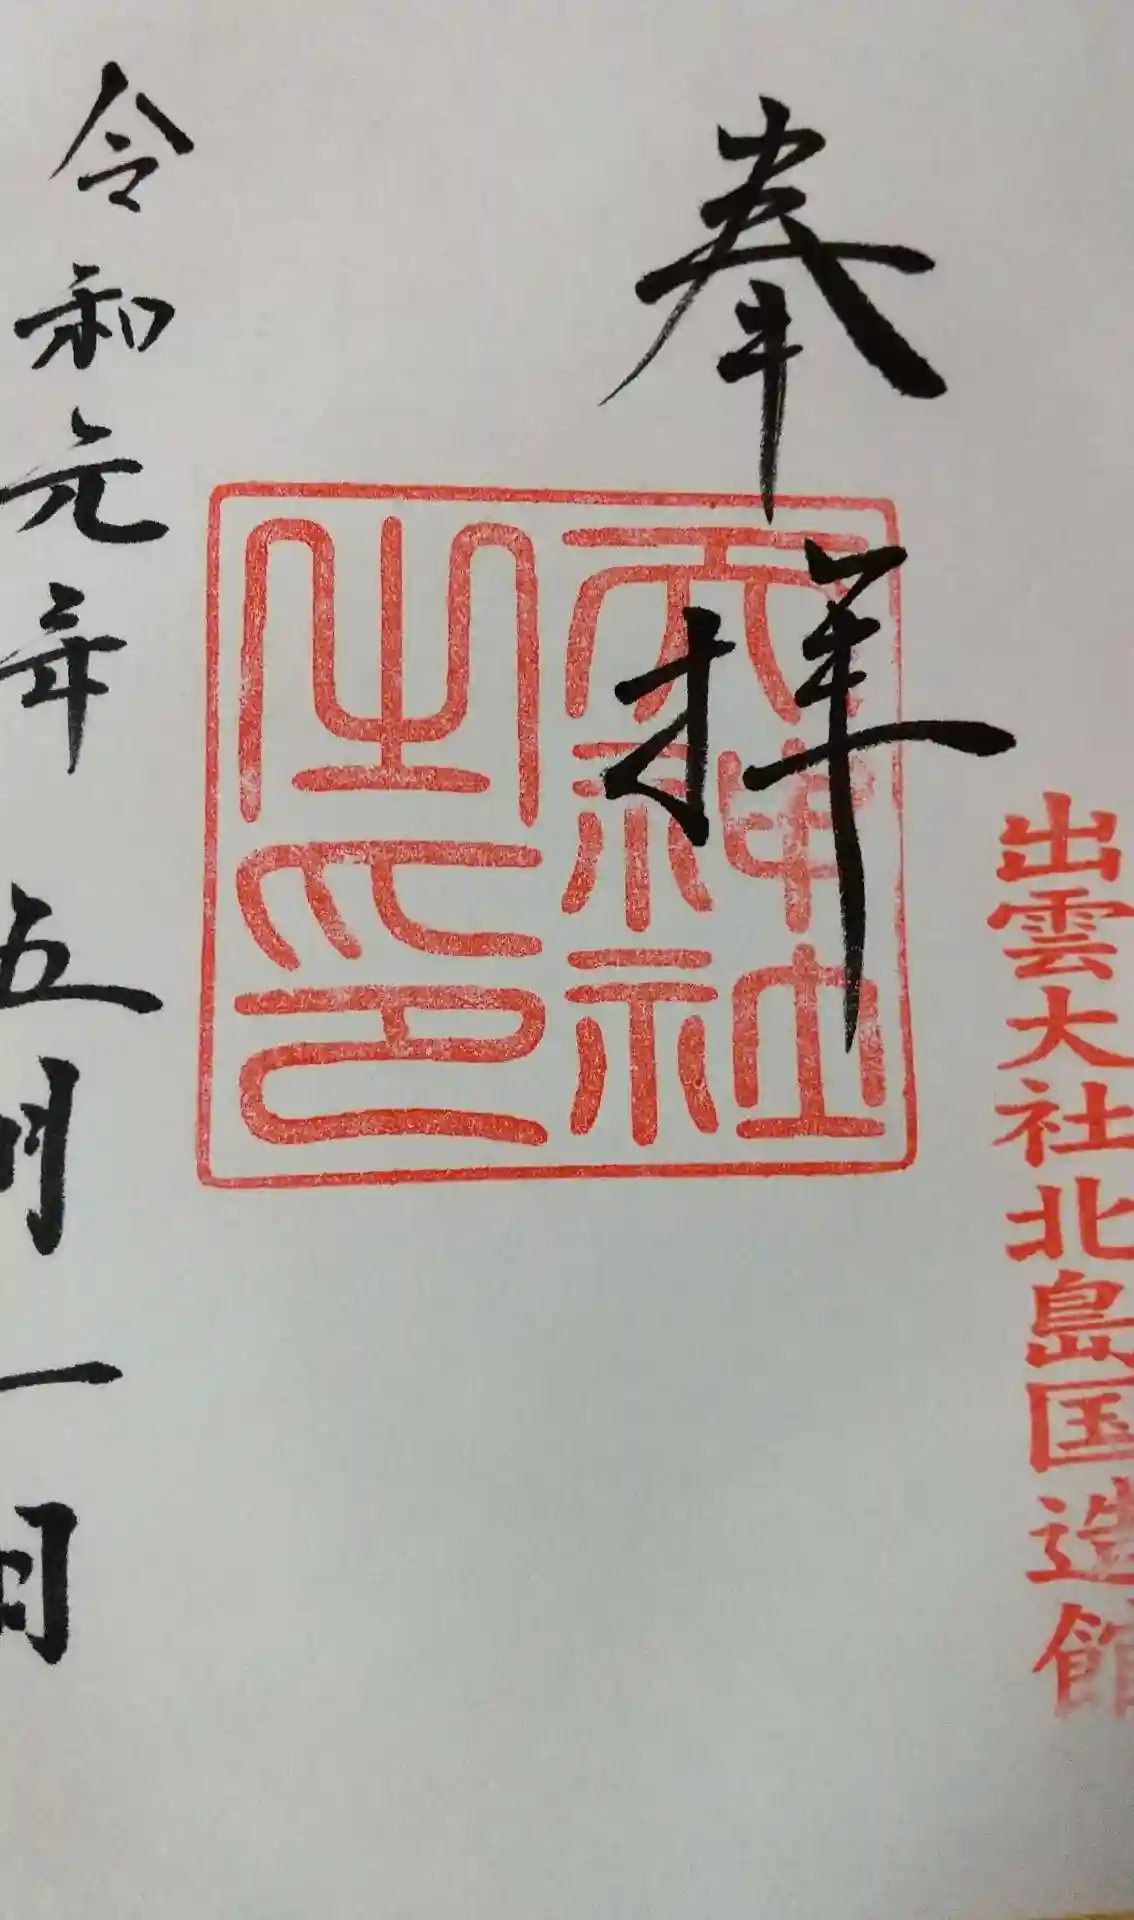 出雲大社北島国造館
奉拝
天神社
之印
令和元年五月一日